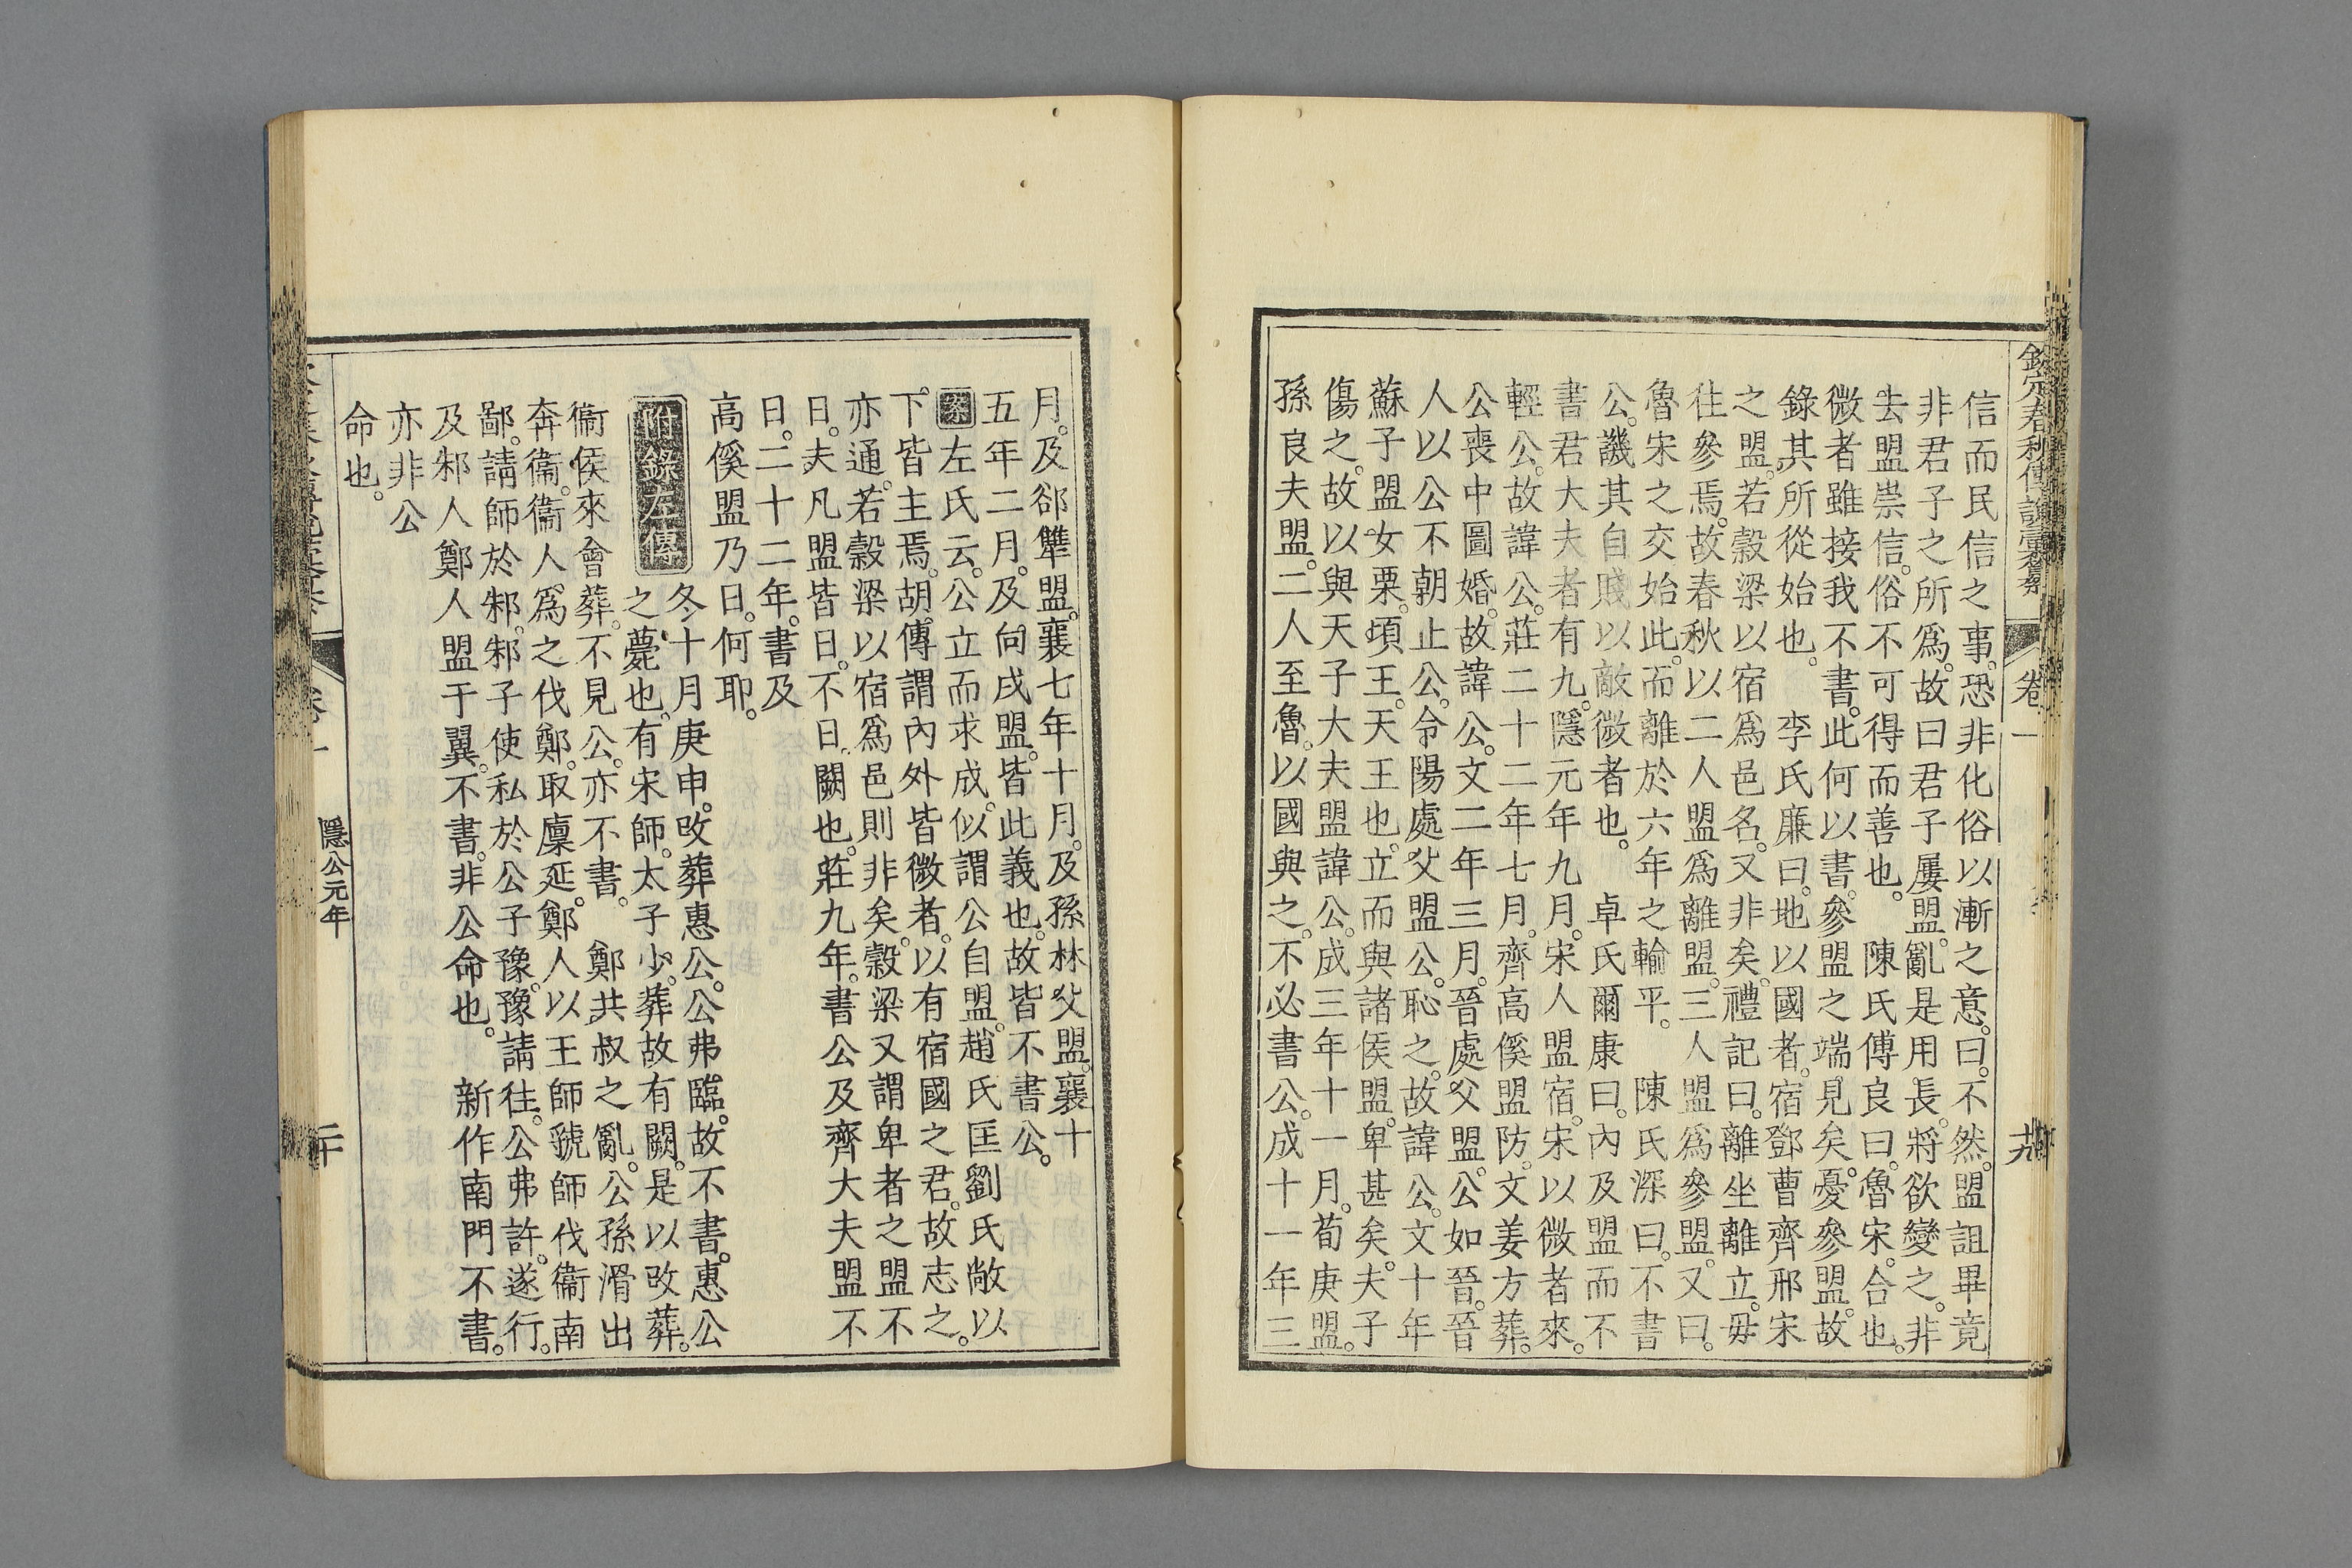 欽定春秋傳說彙纂 卷一 十九
信而民信之事。恐非化俗以漸之意。曰。不然。盟詛畢竟
非君子之所爲。故曰君子屢盟。亂是用長。將欲變之。非
去盟崇信。俗不可得而善也。 陳氏傅良曰。魯宋。合也。
微者雖接我不書。此何以書。參盟之端。見矣。憂參盟。故
錄其所從始也。 李氏廉曰。地以國者。宿鄧曹齊邢宋
之盟。若榖梁以宿爲邑名。又非矣。禮記曰。離坐離立。毋
往參焉。故春秋以二人盟爲離盟。三人盟爲參盟。又曰。
魯宋之交始此。而離於六年之輸平。 陳氏深曰。不書
公。譏其自賤以敵微者也。 卓氏爾康曰。內及盟而不
書君大夫者有九。隱元年九月。宋人盟宿。宋以微者來。
輕公。故諱公。莊二十二年七月。齊高傒盟防。文姜方葬。
公喪中圖婚。故諱公。文二年三月。晉處父盟。公如晉。晉
人以公不朝止公。令陽處父盟公。恥之。故諱公。文十年
蘇子盟女栗。頃王。天王也。立而與諸侯盟。卑甚矣。夫子
傷之。故以與天子大夫盟諱公。成三年十一月。荀庚盟。
孫良夫盟。二人至魯。以國與之。不必書公。成十一年三
月。及郤犨盟。襄七年十月。及孫林父盟。襄十
五年二月。及向戌盟。皆此義也。故皆不書公。
案左氏云。公立而求成。似謂公自盟。趙氏匡劉氏敞以
下。皆主焉。胡傳謂內外皆微者。以有宿國之君。故志之。
亦通。若榖梁以宿爲邑則非矣。榖梁又謂卑者之盟不
日。夫凡盟皆日。不日。闕也。莊九年。書公及齊大夫盟不
日。二十二年。書及
高傒盟乃日。何耶。
附錄左傳
冬十月庚申。改葬惠公。公弗臨。故不書。惠公
之薨也。有宋師。太子少。葬故有闕。是以改葬。
衞侯來會葬。不見公。亦不書。 鄭共叔之亂。公孫滑出
奔衞。衞人爲之伐鄭。取廩延。鄭人以王師虢師伐衞南
鄙。請師於邾。邾子使私於公子豫。豫請往。公弗許。遂行。
及邾人鄭人盟于翼。不書。非公命也。 新作南門不書。
亦非公
命也。
卷一 隱公元年 二十